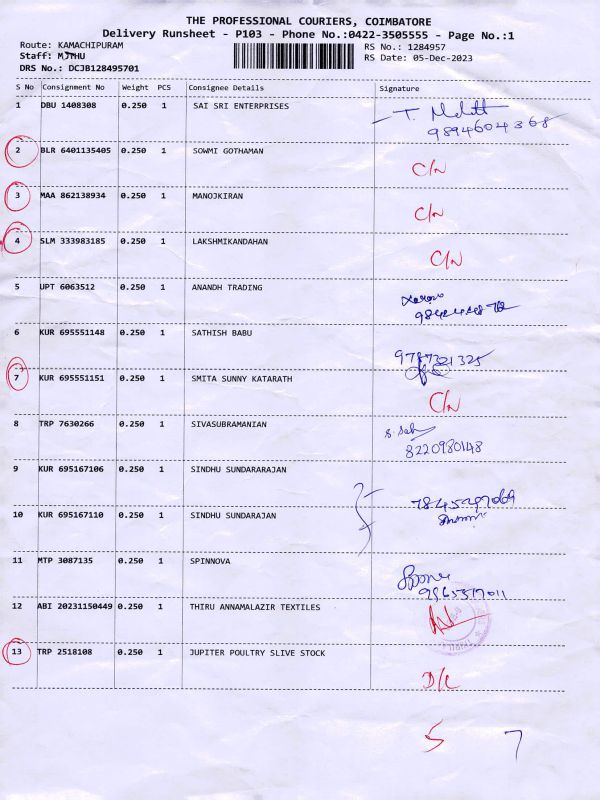 THE PROFESSIONAL COURIERS, COIMBATORE
Delivery Runsheet - P103 - Phone No.:0422-3505555 - Page No.:1
Route: KAMACHIPURAM RS No.: 1284957
Staff: MJTHU RS Date: 05-Dec-2023
DRS No.: DCJB128495701
S No Consignment No Weight PCS Consignee Details Signature
1 DBU 1408308 0.250 1 SAI SRI ENTERPRISES
9894604368
2 BLR 6401135405 0.250 1 SOWMI GOTHAMAN
C/N
3 MAA 862138934 0.250 1 MANOJKIRAN
C/N
4 SLM 333983185 0.250 1 LAKSHMIKANDAHAN
C/N
5 UPT 6063512 0.250 1 ANANDH TRADING
6 KUR 695551148 0.250 1 SATHISH BABU
9787321325
7 KUR 695551151 0.250 1 SMITA SUNNY KATARATH
C/N
8 TRP 7630266 0.250 1 SIVASUBRAMANIAN
8220980148
9 KUR 695167106 0.250 1 SINDHU SUNDARARAJAN
10 KUR 695167110 0.250 1 SINDHU SUNDARAJAN
11 MTP 3087135 0.250 1 SPINNOVA
12 ABI 20231150449 0.250 1 THIRU ANNAMALAZIR TEXTILES
13 TRP 2518108 0.250 1 JUPITER POULTRY SLIVE STOCK
D/L
5 7